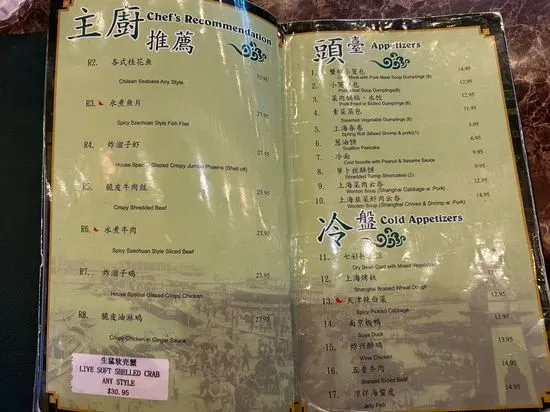 主廚
推薦
Chef's Recommendation
R2. 各式桂花魚
Chilean Seabass Any Style
R3. 水煮魚片
Spicy Szechuan Style Fish Filet 27.95
R4. 炸溜子虾
House Special Glazed Crispy Jumbo Prawns (Shell off) 27.95
R5. 脆皮牛肉丝
Crispy Shredded Beef 23.95
R6. 水煮牛肉
Spicy Szechuan Style Sliced Beef 23.95
R7. 炸溜子鸡
House Special Glazed Crispy Chicken 23.95
R8. 脆皮油淋鸡
Crispy Chicken in Ginger Sauce 27.95
生猛软壳蟹
LIVE SOFT SHELLED CRAB
ANY STYLE
$30.95
頭臺 Appetizers
1. 小笼包 14.95
Meat with Pork Meat Soup Dumplings (6)
2. 小笼包 12.95
Pork Meat Soup Dumplings(6)
3. 菜肉锅贴、水饺 12.95
Pork Fried or Boiled Dumplings (6)
4. 素菜蒸包
Steamed Vegetable Dumplings (6)
5. 上海春卷
Spring Roll (Mixed Shrimp & pork)(1)
6. 葱油饼
Scallion Pancake
7. 冷面
Cold Noodle with Peanut & Sesame Sauce
8. 萝卜丝酥饼
Shredded Turnip Shortcakes (2)
9. 上海菜肉云吞
Wonton Soup (Shanghai Cabbage w. Pork)
10. 上海韭菜虾肉云吞 14.95
Wonton Soup (Shanghai Chives & Shrimp w. Pork)
冷盤 Cold Appetizers
11. 七彩 12.95
Dry Bean Curd with Mixed Vegetable
12. 上海烤麸 14.95
Shanghai Braised Wheat Dough
13. 天津辣白菜 12.95
Spicy Pickled Cabbage
14. 南京板鸭 13.95
Soya Duck
15. 绍兴醉鸡 13.95
Wine Chicken
16. 五香牛肉
Braised Sliced Beef
17. 凉拌海蜇皮
Jelly Fish